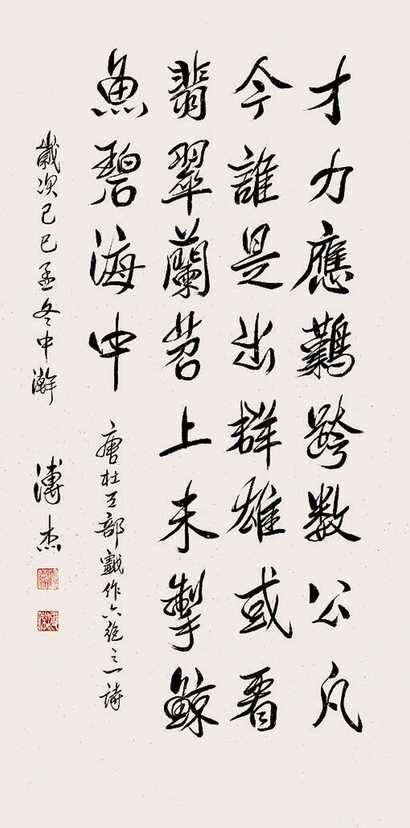 才力應難跨数公凡
今誰是出群雄或看
翡翠蘭苕上未掣鯨
魚碧海中
唐杜工部戲作六絶之一詩
歲次己巳孟冬中澣
溥杰